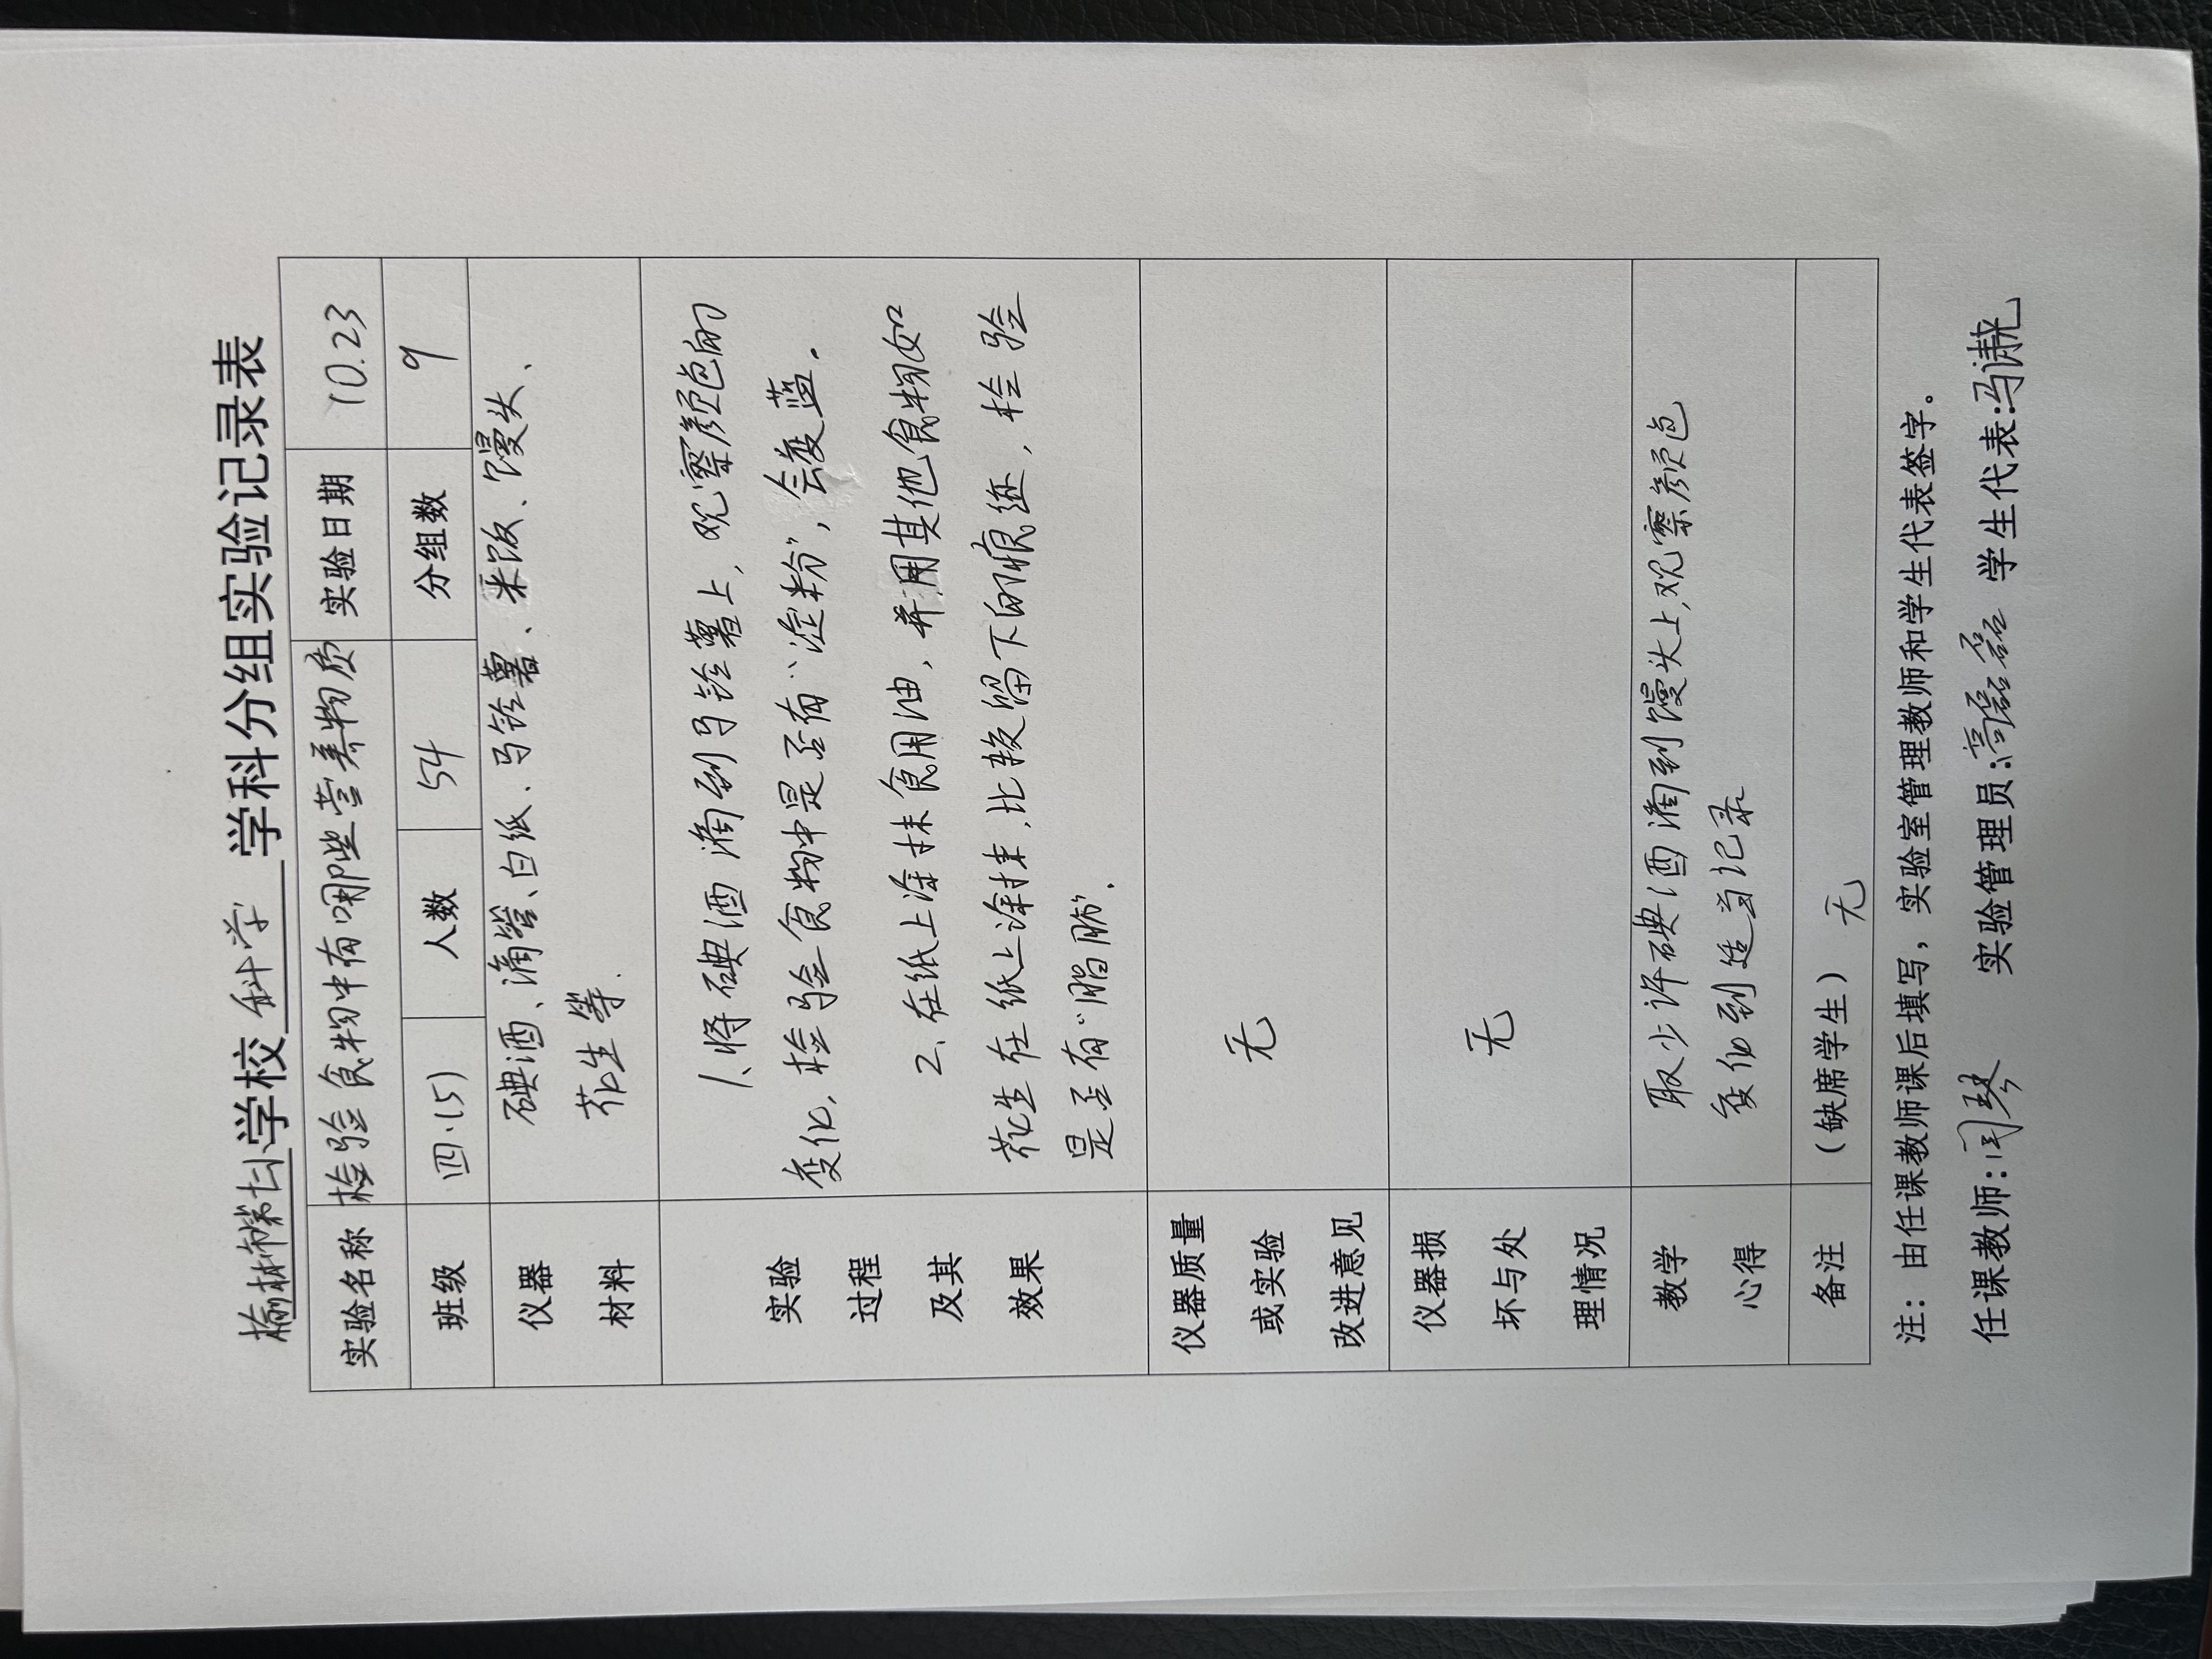 榆林市第七小学校 科学 学科分组实验记录表
实验名称 检验食物中有哪些营养物质 实验日期 10.23
班级 四.(5) 人数 54 分组数 9
仪器 碘酒、滴管、白纸、马铃薯、米饭、馒头、
材料 花生等.
实验 1、将碘酒滴到马铃薯上，观察颜色的
过程 变化，检验食物中是否有“淀粉”，会变蓝。
及其 2、在纸上涂抹食用油，并用其他食物如
效果 花生在纸上涂抹，比较留下的痕迹，检验
是否有“脂肪”.
仪器质量
或实验 无
改进意见
仪器损
坏与处 无
理情况
教学 取少许碘酒滴到馒头上，观察颜色
心得 变化到适当记录
备注 （缺席学生） 无
注：由任课教师课后填写，实验室管理教师和学生代表签字。
任课教师:闫琴 实验管理员:高磊磊 学生代表:马